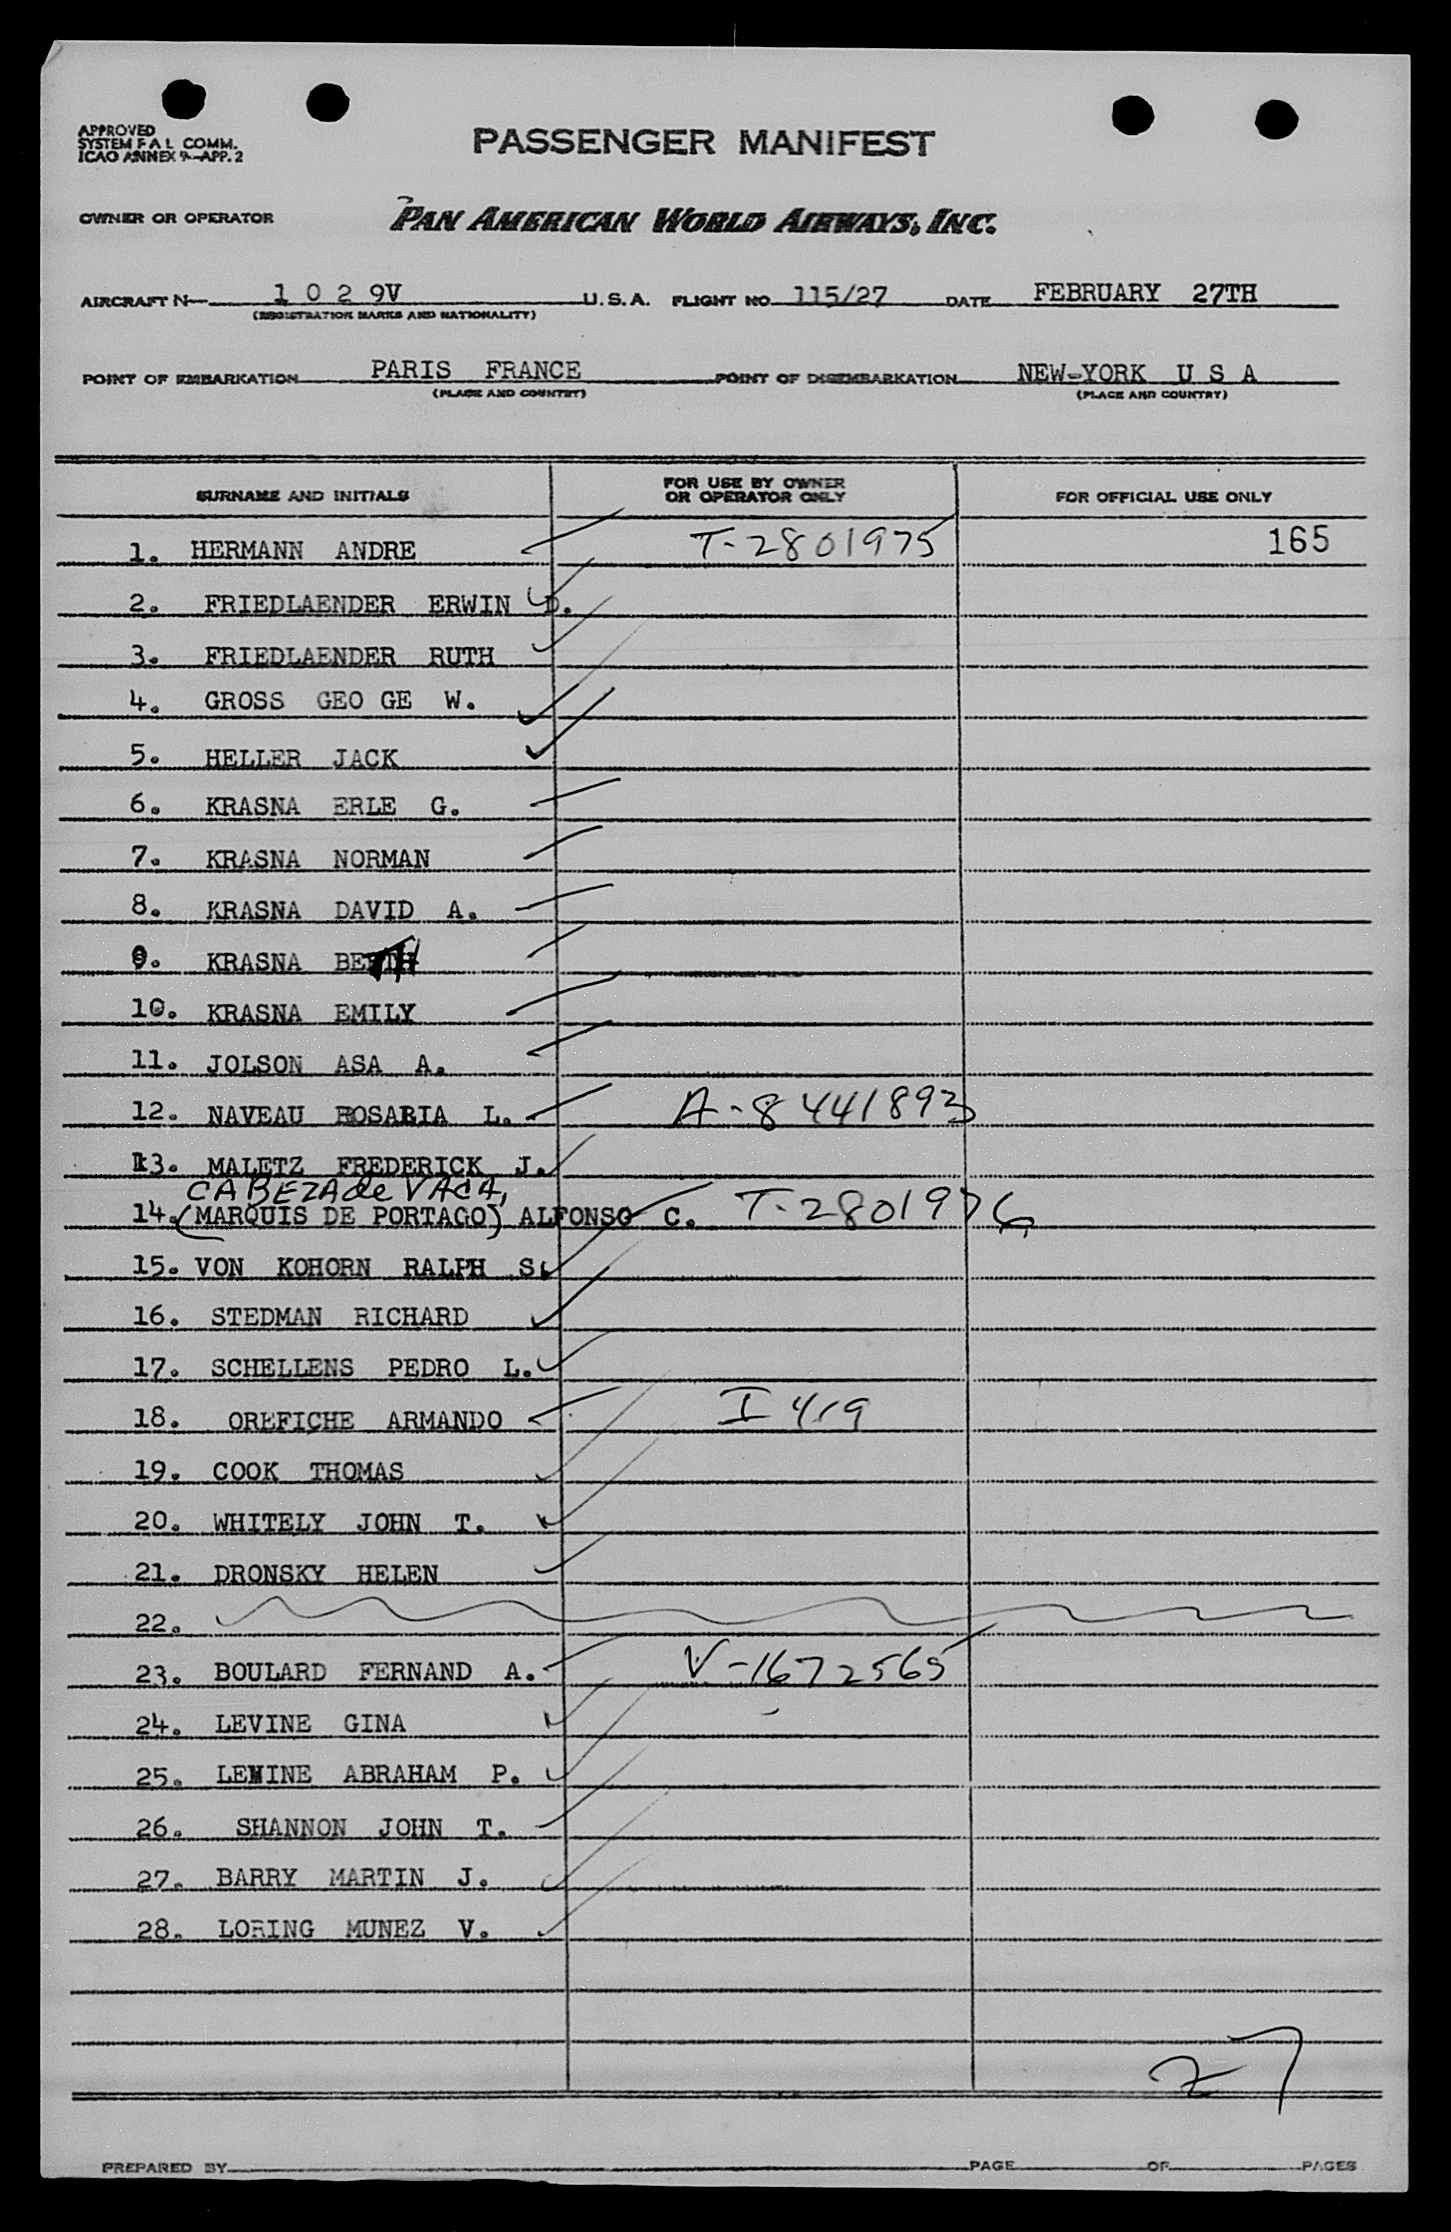 APPROVED
SYSTEM F A L COMM.
ICAO ANNEX 9—APP. 2
PASSENGER MANIFEST
OWNER OR OPERATOR PAN AMERICAN WORLD AIRWAYS, INC.
AIRCRAFT N— 1 0 2 9V U.S.A. FLIGHT NO. 115/27 DATE FEBRUARY 27TH
(REGISTRATION MARKS AND NATIONALITY)
POINT OF EMBARKATION PARIS FRANCE POINT OF DISEMBARKATION NEW-YORK U S A
(PLACE AND COUNTRY) (PLACE AND COUNTRY)
SURNAME AND INITIALS FOR USE BY OWNER OR OPERATOR ONLY FOR OFFICIAL USE ONLY
1. HERMANN ANDRE T-2801975 165
2. FRIEDLAENDER ERWIN D.
3. FRIEDLAENDER RUTH
4. GROSS GEO GE W.
5. HELLER JACK
6. KRASNA ERLE G.
7. KRASNA NORMAN
8. KRASNA DAVID A.
9. KRASNA
10. KRASNA EMILY
11. JOLSON ASA A.
12. NAVEAU ROSARIA L. A-8441893
13. MALETZ FREDERICK J.
CABEZA de VACA,
14. (MARQUIS DE PORTAGO) ALFONSO C. T-2801976
15. VON KOHORN RALPH S.
16. STEDMAN RICHARD
17. SCHELLENS PEDRO L.
18. OREFICHE ARMANDO I 419
19. COOK THOMAS
20. WHITELY JOHN T.
21. DRONSKY HELEN
22.
23. BOULARD FERNAND A. V-1672565
24. LEVINE GINA
25. LEVINE ABRAHAM P.
26. SHANNON JOHN T.
27. BARRY MARTIN J.
28. LORING MUNEZ V.
27
PREPARED BY PAGE OF PAGES